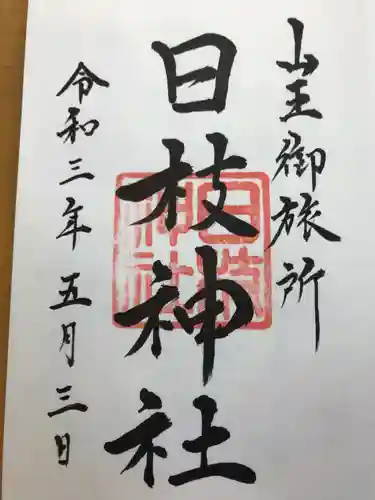 山王御旅所
日枝神社
令和三年五月三日
日枝神社